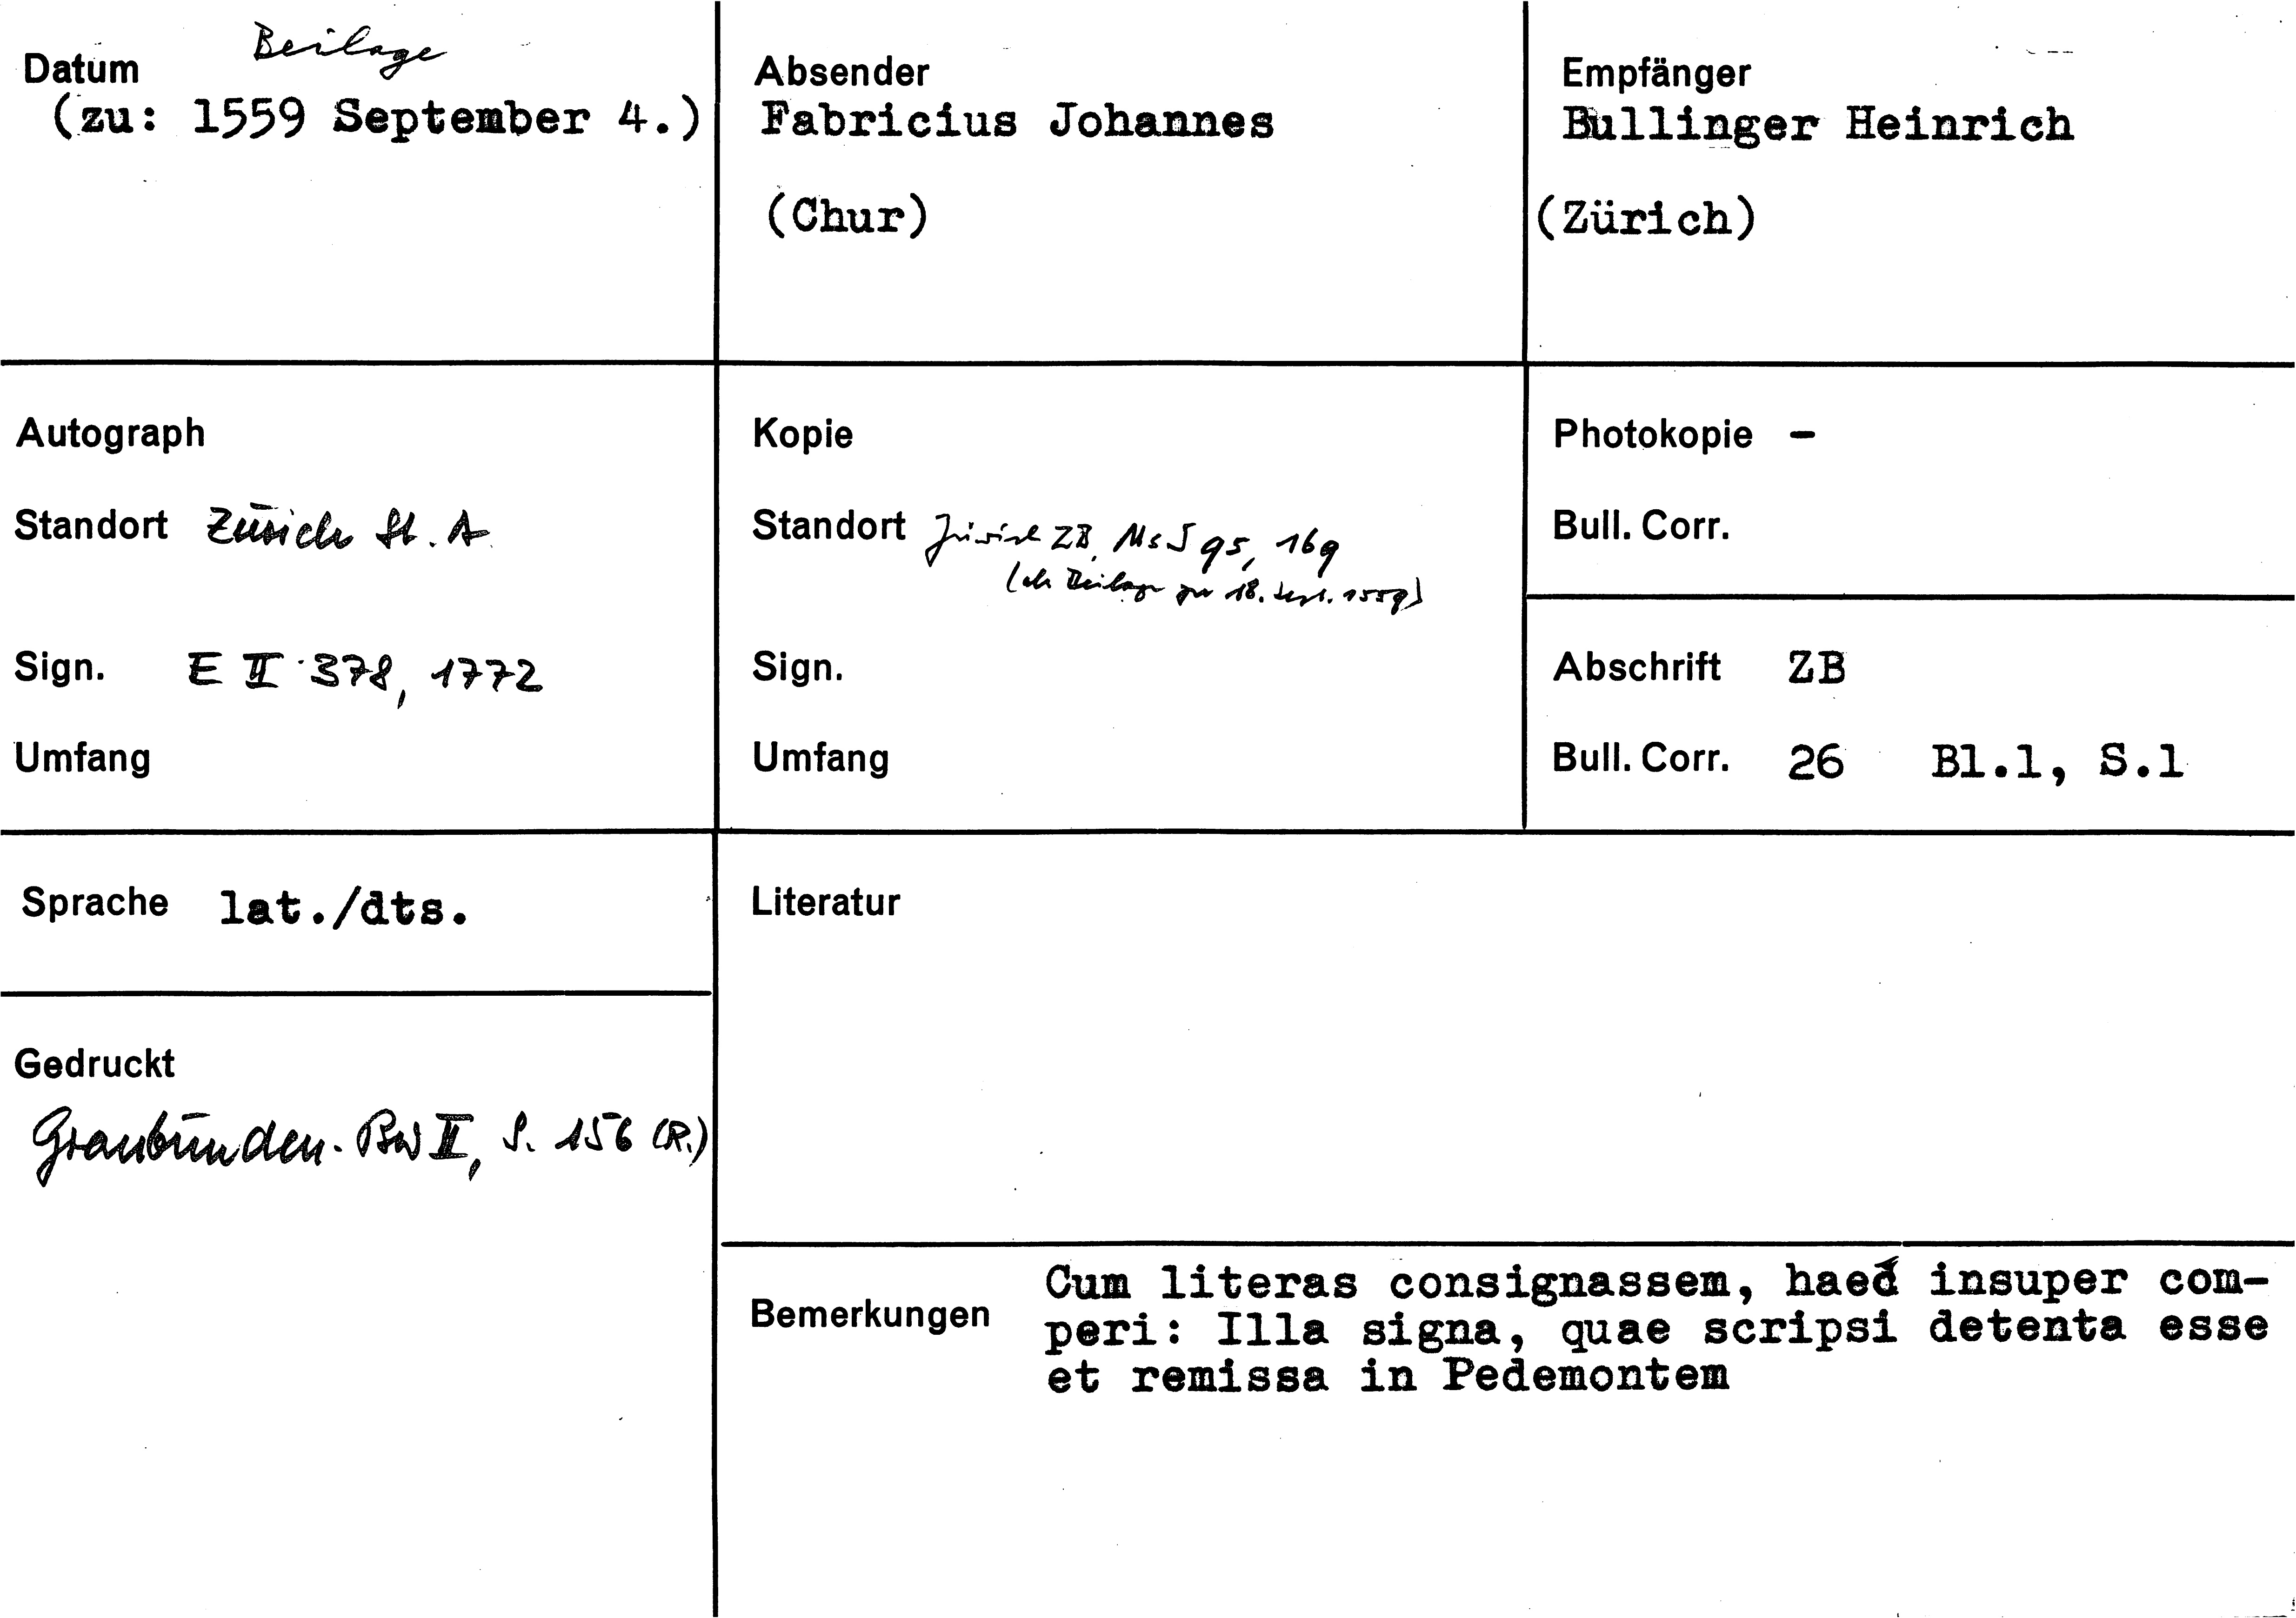 Datum Beilage
(zu: 1559 September 4.)
Absender
Fabricius Johannes
(Chur)
Empfänger
Bullinger Heinrich
(Zürich)
Autograph
Standort Zürich St. A.
Sign. E II 378, 1772
Umfang
Kopie
Standort Zürich ZB, Ms S 95, 169
(als Beilage zu 18. Sept. 1559)
Sign.
Umfang
Photokopie -
Bull. Corr.
Abschrift ZB
Bull. Corr. 26 Bl.1, S.1
Sprache lat./dts.
Gedruckt
Graubünden. Bw II, S. 156 (R.)
Literatur
Bemerkungen
Cum literas consignassem, haec insuper com-
peri: Illa signa, quae scripsi detenta esse
et remissa in Pedemontem